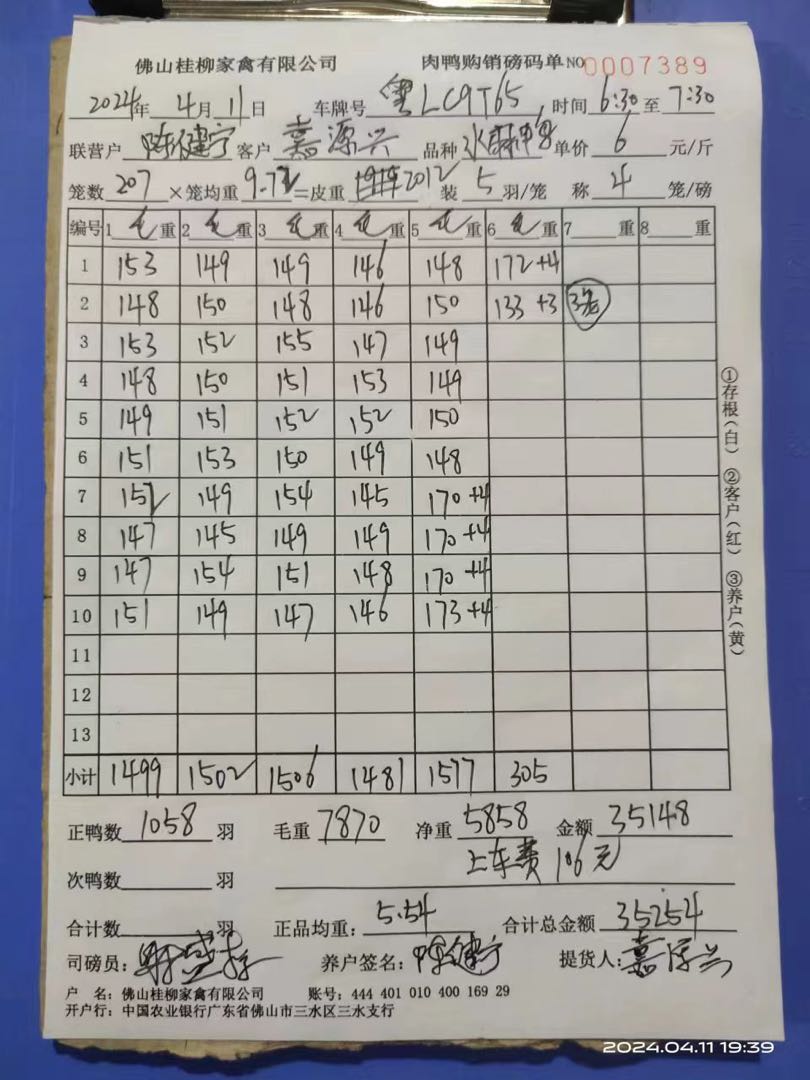 佛山桂柳家禽有限公司 肉鸭购销磅码单 NO 0007389
2024年 4月 11日 车牌号 粤LC9T65 时间 6:30 至 7:30
联营户 陈健宁 客户 嘉源兴 品种 单价 6 元/斤
笼数 207 ×笼均重 9.72 =皮重 2012 装 5 羽/笼 称 4 笼/磅
编号 1 毛 重 2 毛 重 3 毛 重 4 毛 重 5 毛 重 6 毛 重 7 重 8 重
1 153 149 149 146 148 172+4
2 148 150 148 146 150 133+3 3笼
3 153 152 155 147 149
4 148 150 151 153 149
5 149 151 152 152 150
6 151 153 150 149 148
7 152 149 154 145 170+4
8 147 145 149 149 170+4
9 147 154 151 148 170+4
10 151 149 147 146 173+4
11
12
13
小计 1499 1502 1506 1481 1577 305
①存根(白) ②客户(红) ③养户(黄)
正鸭数 1058 羽 毛重 7870 净重 5858 金额 35148
次鸭数 羽 上车费 106元
合计数 羽 正品均重: 5.54 合计总金额 35254
司磅员: 养户签名: 陈健宁 提货人: 嘉源兴
户 名: 佛山桂柳家禽有限公司 账号: 444 401 010 400 169 29
开户行: 中国农业银行广东省佛山市三水区三水支行
2024.04.11 19:39